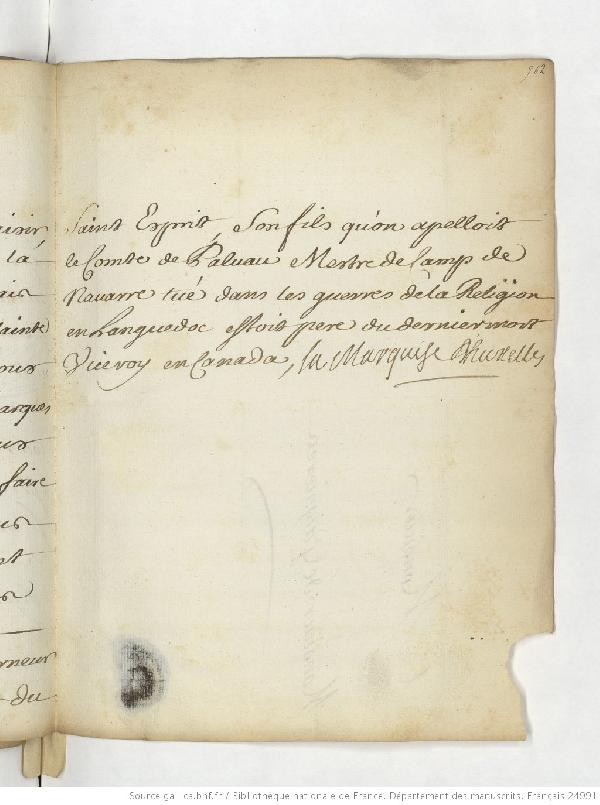 962
Saint Esprit, Son fils qu'on apelloit
le Comte de Paluau Mestre de Camp de
Navarre tué dans les guerres de la Religion
en Languedoc estoit pere du dernier mort
Viceroy en Canada, la Marquise D'huxelles
là
ainte
our
arques
ur
faire
us
nt
s
rneur
du
Source gallica.bnf.fr / Bibliothèque nationale de France. Département des manuscrits. Français 24991